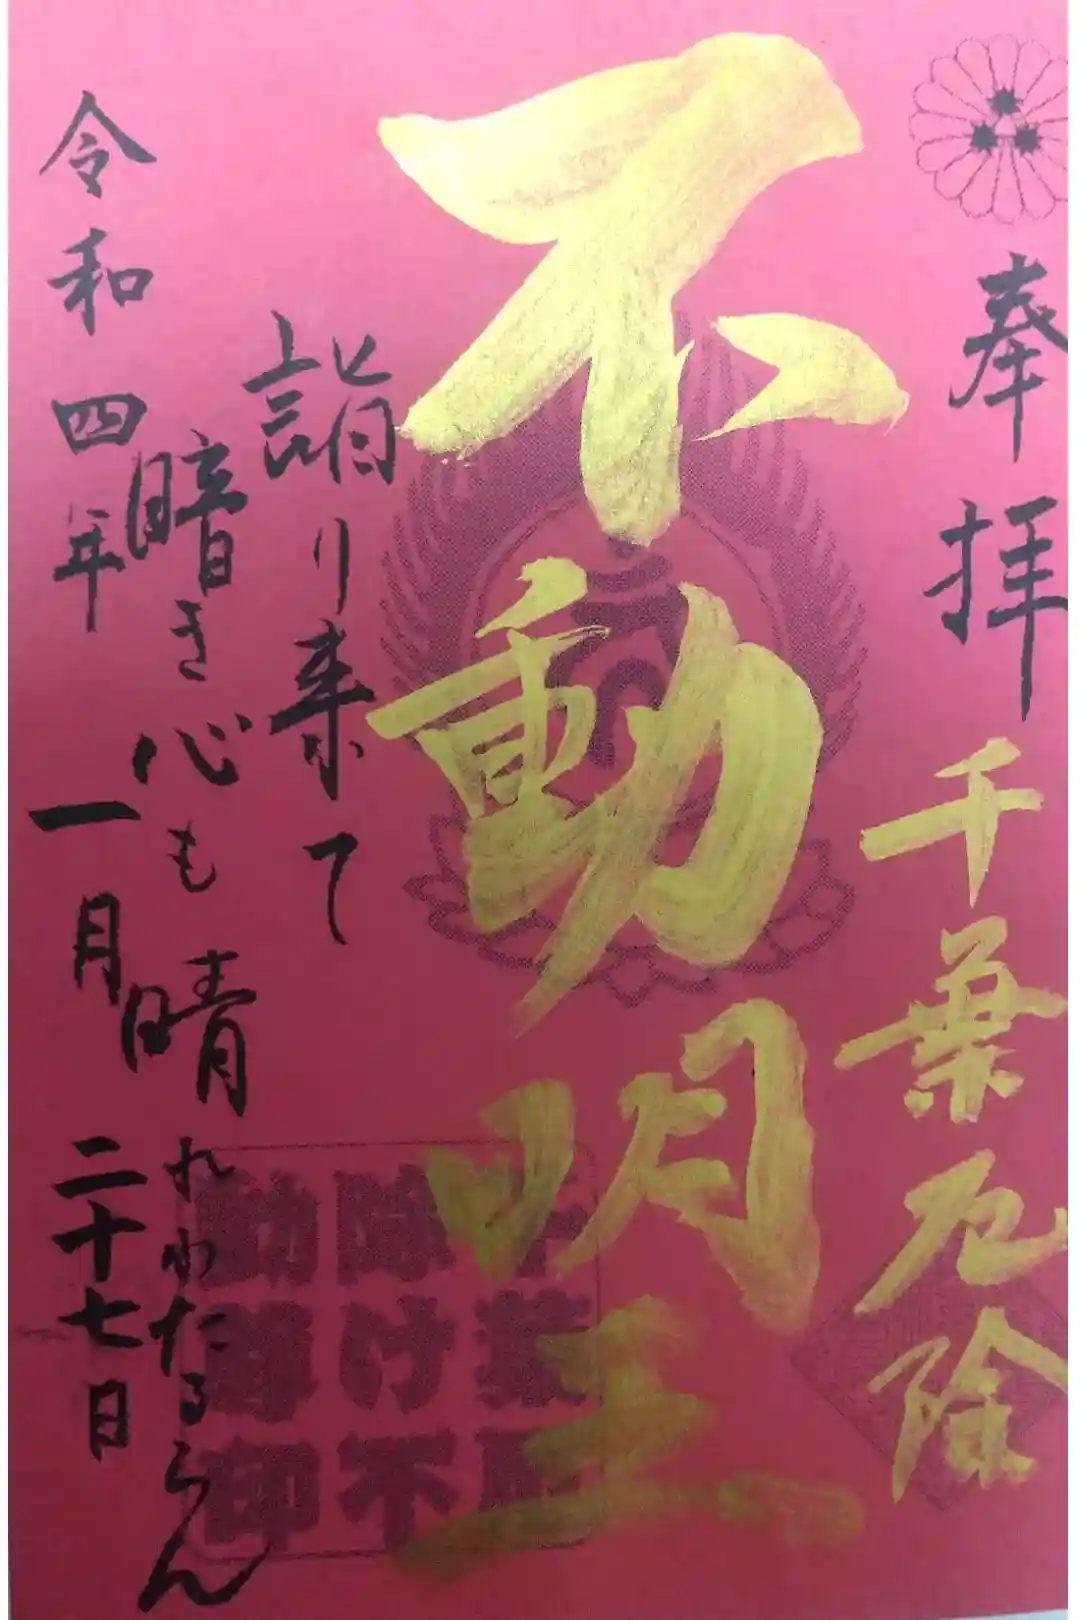 奉拝
千葉厄除
不動明王
詣り来て
暗き心も晴れわたるらん
令和四年一月二十七日
千葉厄
除け不
動尊印